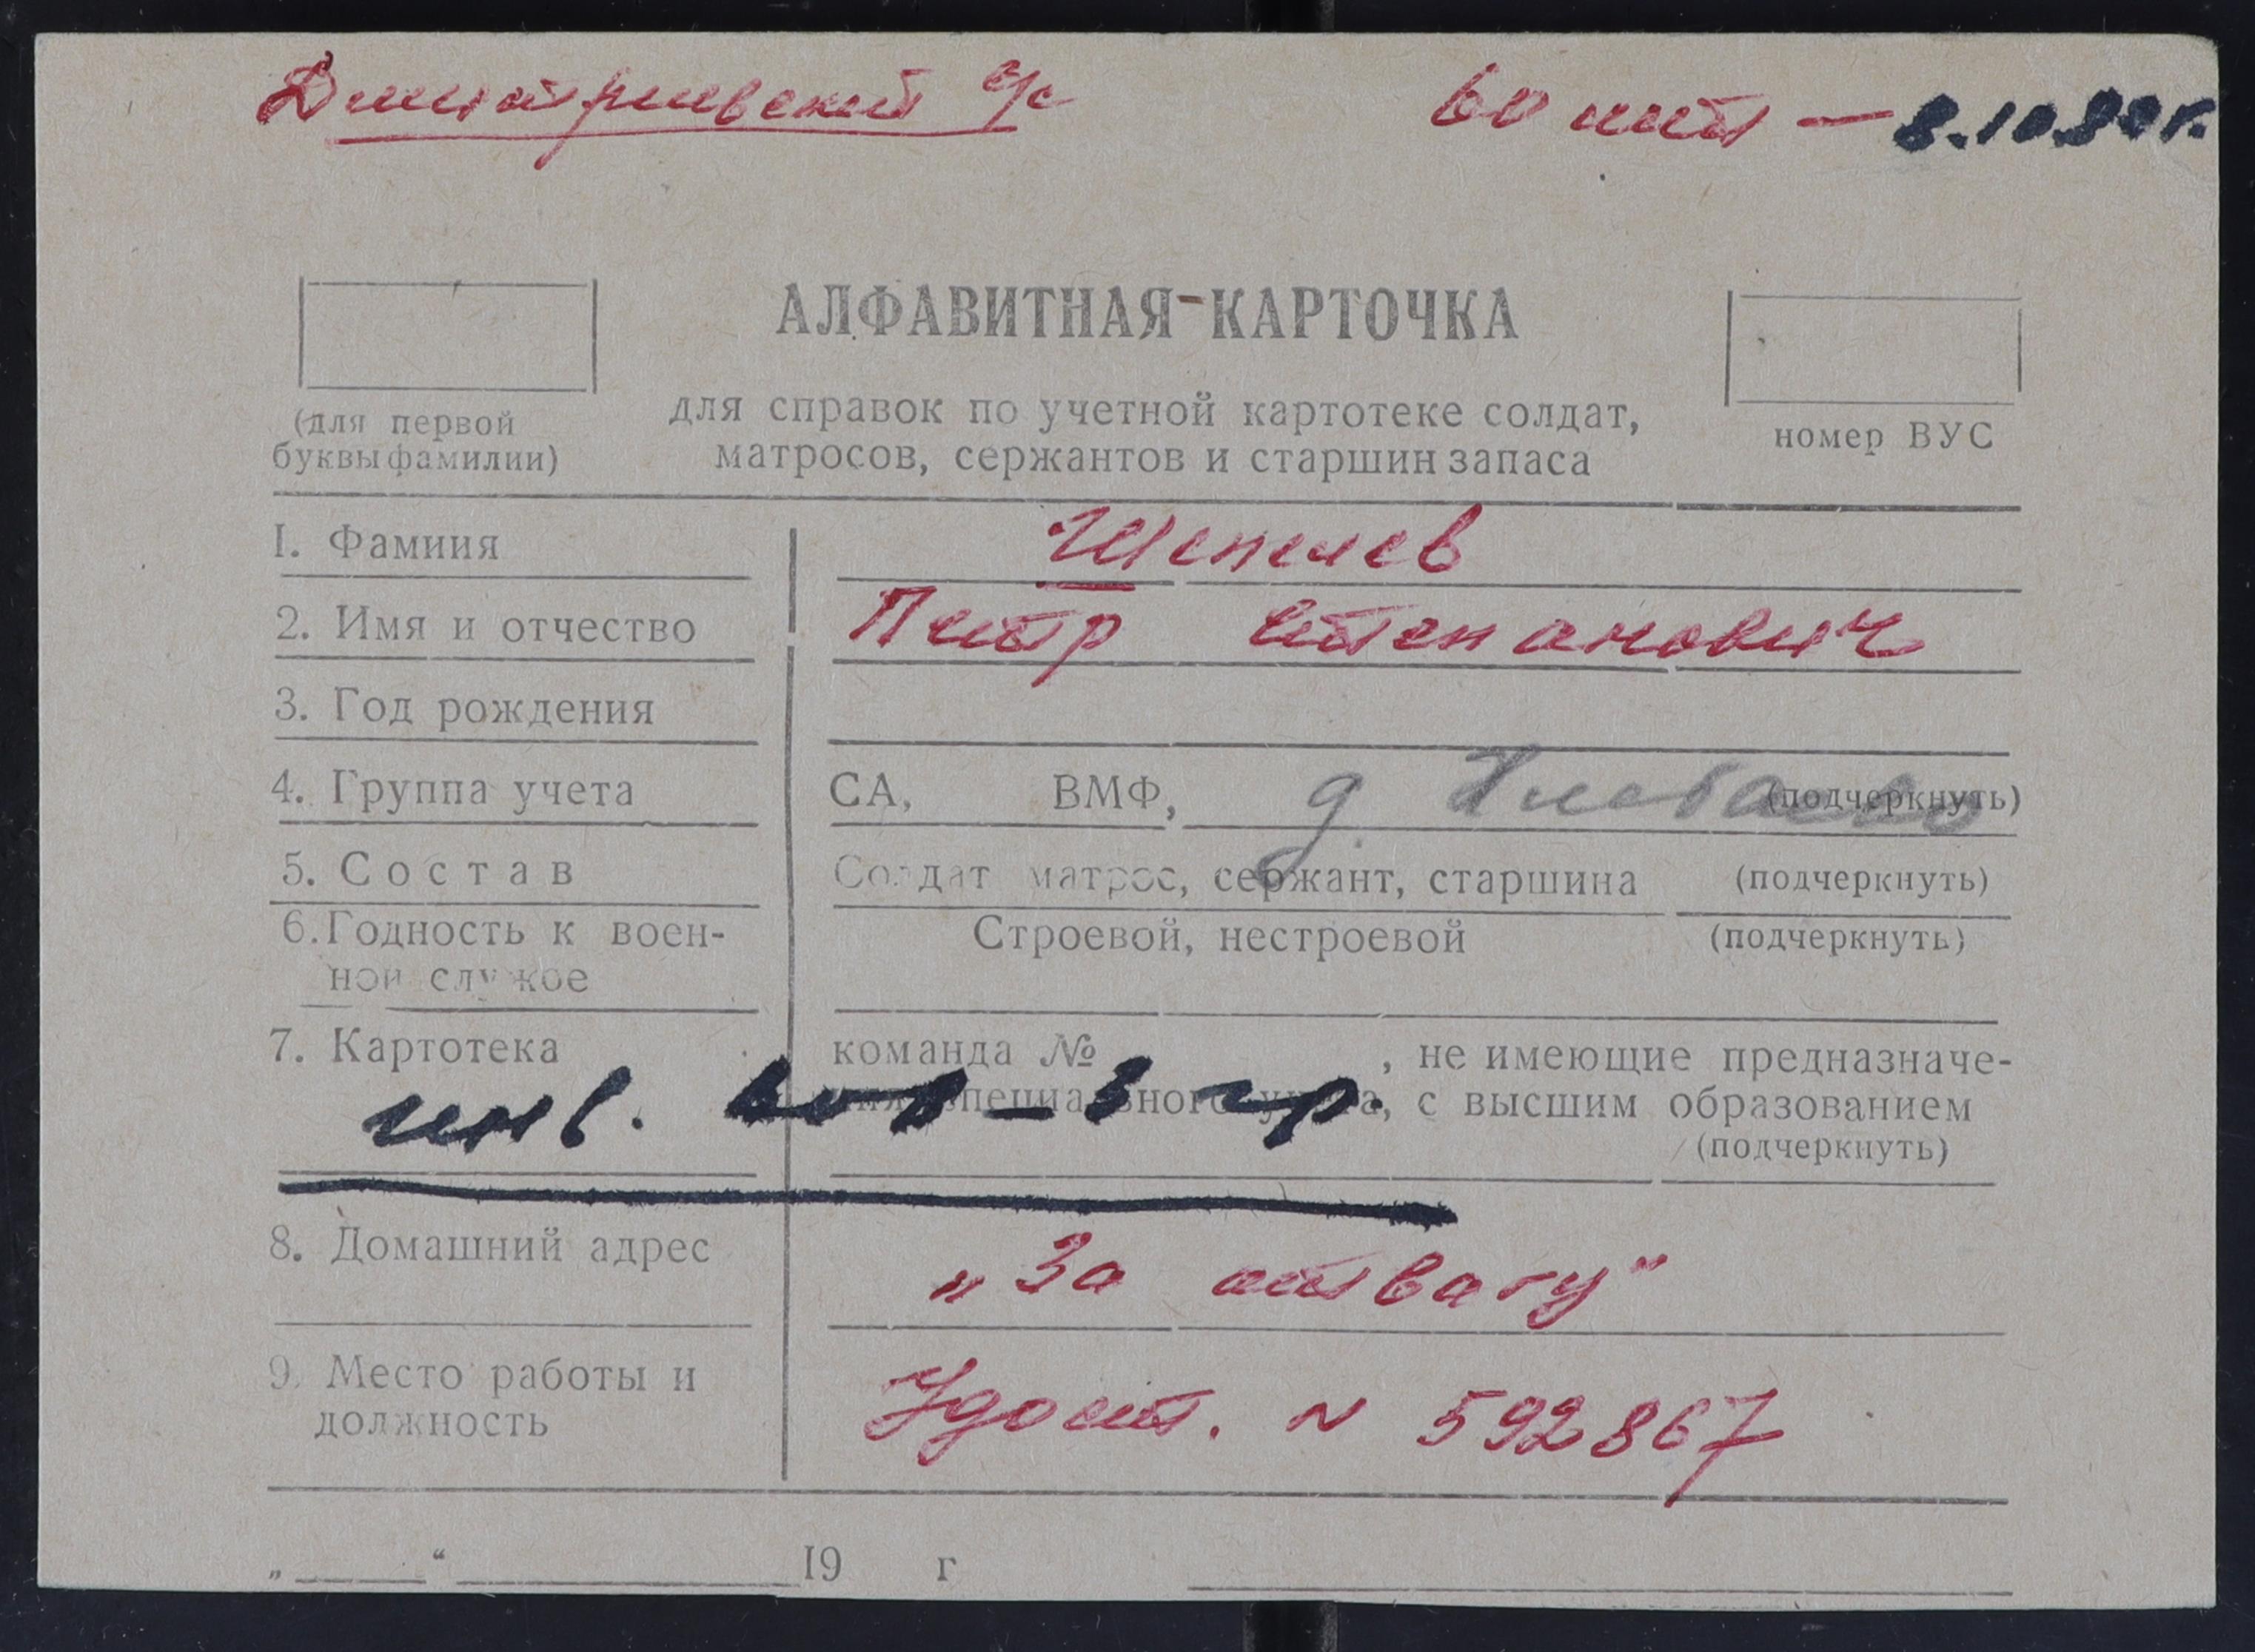 Дмитриевский с/с 60 лет — 8.10.80 г.
АЛФАВИТНАЯ-КАРТОЧКА
(для первой буквы фамилии)
для справок по учетной картотеке солдат,
матросов, сержантов и старшин запаса
номер ВУС
1. Фамиия Шепелев
2. Имя и отчество Петр Степанович
3. Год рождения
4. Группа учета СА, ВМФ, д (подчеркнуть)
5. Состав Солдат матрос, сержант, старшина (подчеркнуть)
6. Годность к воен- Строевой, нестроевой (подчеркнуть)
ной службе
7. Картотека команда № , не имеющие предназначе-
ния специального учета, с высшим образованием
инв. вов – 3 гр.
(подчеркнуть)
8. Домашний адрес „За отвагу"
9. Место работы и Удост. N 592867
должность
„ “ 19 г